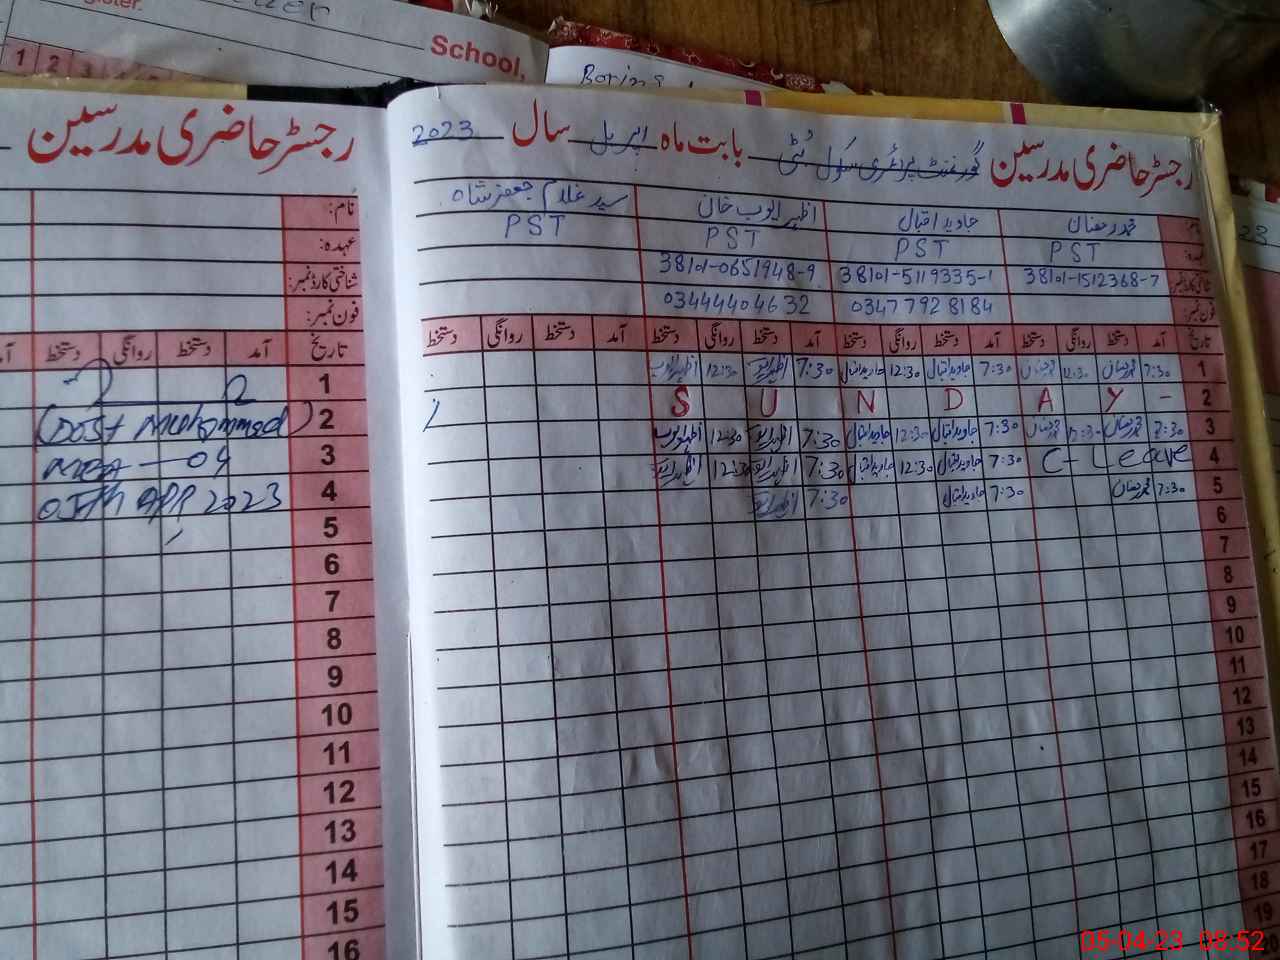 School,
Boring
1 2 3 4
رجسٹر حاضری مدرسین گورنمنٹ پرائمری سکول بُٹی بابت ماہ اپریل سال 2023
نام: محمد رمضان جاوید اقبال اظہر ایوب خان سید غلام جعفر شاہ
عہدہ: PST PST PST PST
شناختی کارڈ نمبر: 38101-1512368-7 38101-5119335-1 38101-0651948-9
فون نمبر: 03477928184 03444404632
تاریخ آمد دستخط روانگی دستخط آمد دستخط روانگی دستخط آمد دستخط روانگی دستخط آمد دستخط روانگی دستخط
1 7:30 محمد رمضان 12:30 محمد رمضان 7:30 جاوید اقبال 12:30 جاوید اقبال 7:30 اظہر ایوب 12:30 اظہر ایوب
2 S U N D A Y -
3 7:30 محمد رمضان 12:30 محمد رمضان 7:30 جاوید اقبال 12:30 جاوید اقبال 7:30 اظہر ایوب 12:30 اظہر ایوب
4 C- Leave 7:30 جاوید اقبال 12:30 جاوید اقبال 7:30 اظہر ایوب 12:30 اظہر ایوب
5 7:30 محمد رمضان 7:30 جاوید اقبال 7:30 اظہر ایوب
6
7
8
9
10
11
12
13
14
15
16
17
18
19
رجسٹر حاضری مدرسین
نام:
عہدہ:
شناختی کارڈ نمبر:
فون نمبر:
تاریخ آمد دستخط روانگی دستخط
1
2 (Dost Muhammad)
3 MEA - 04
4 05th APR 2023
5
6
7
8
9
10
11
12
13
14
15
16
05-04-23 08:52